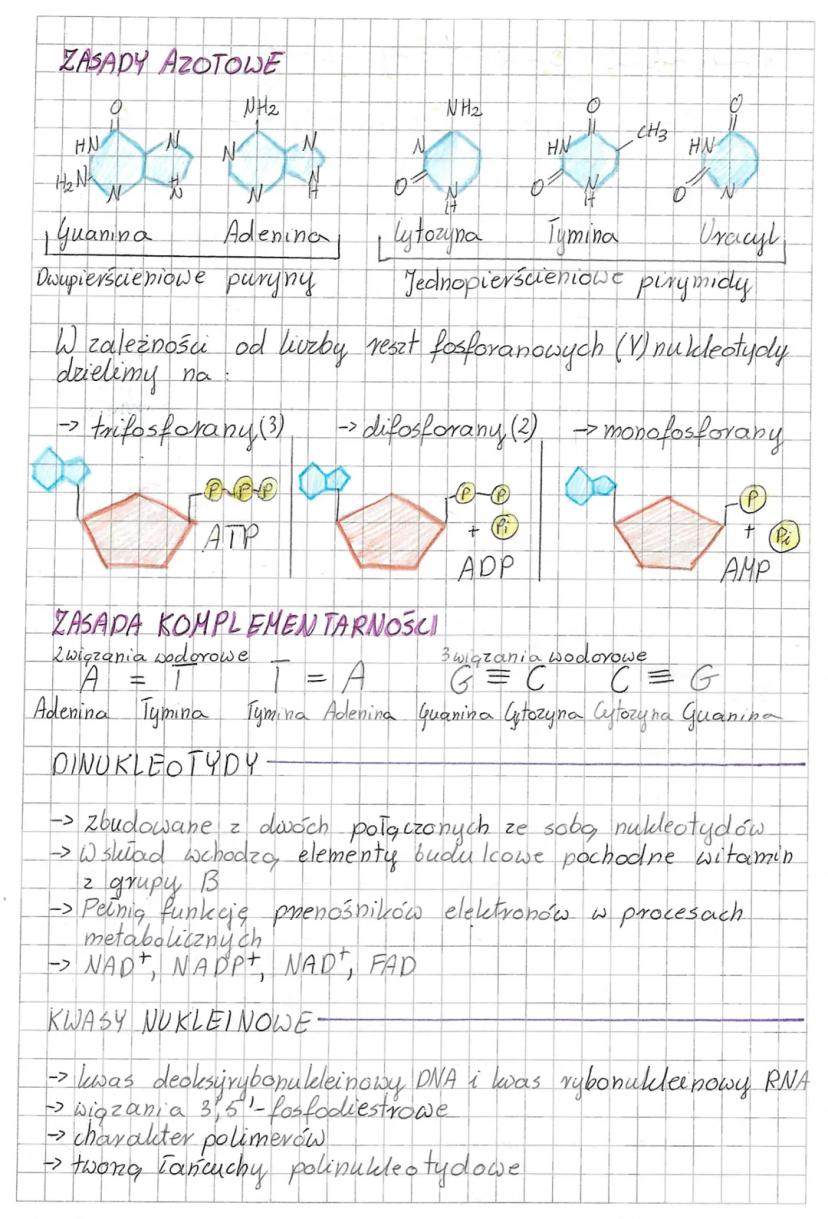 ZASADY AZOTOWE
O NH2 NH2 O O
HN N N N N HN CH3 HN
H2N N N H N N H O N H O N H O N
Guanina Adenina Cytozyna Tymina Uracyl
Dwupierścieniowe puryny Jednopierścieniowe pirymidy
W zależności od liczby reszt fosforanowych (V) nukleotydy
dzielimy na :
-> trifosforany (3) -> difosforany (2) -> monofosforany
P P P P P P
+ Pi + Pi
ATP ADP AMP
ZASADA KOMPLEMENTARNOŚCI
2 wiązania wodorowe 3 wiązania wodorowe
A = T T = A G ≡ C C ≡ G
Adenina Tymina Tymina Adenina Guanina Cytozyna Cytozyna Guanina
DINUKLEOTYDY
-> zbudowane z dwóch połączonych ze sobą nukleotydów
-> W skład wchodzą elementy budulcowe pochodne witamin
z grupy B
-> Pełnią funkcję przenośników elektronów w procesach
metabolicznych
-> NAD+, NADP+, NAD+, FAD
KWASY NUKLEINOWE
-> kwas deoksyrybonukleinowy DNA i kwas rybonukleinowy RNA
-> wiązania 3',5'-fosfodiestrowe
-> charakter polimerów
-> tworzą łańcuchy polinukleotydowe